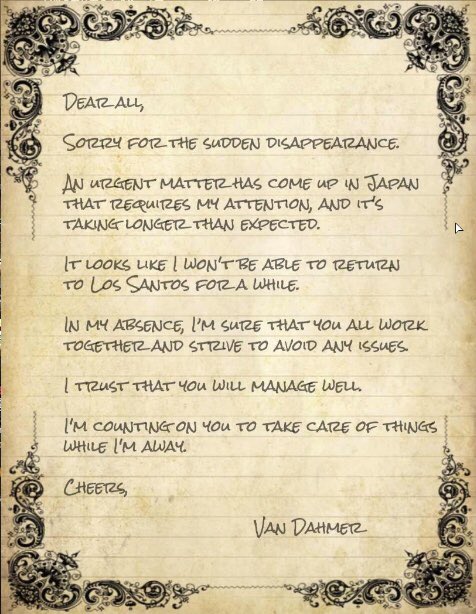 Dear all,
Sorry for the sudden disappearance.
An urgent matter has come up in Japan
that requires my attention, and it's
taking longer than expected.
It looks like I won't be able to return
to Los Santos for a while.
In my absence, I'm sure that you all work
together and strive to avoid any issues.
I trust that you will manage well.
I'm counting on you to take care of things
while I'm away.
Cheers,
Van Dahmer